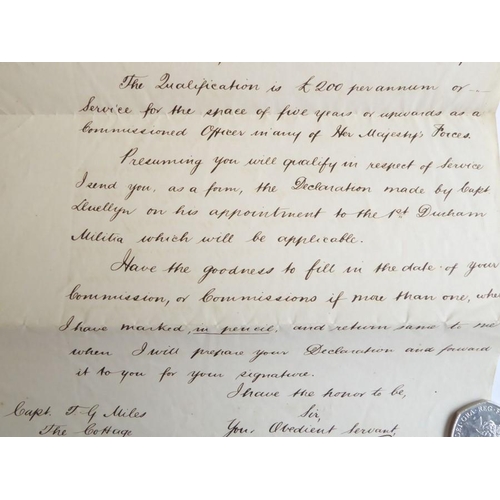 The Qualification is £200 per annum or
Service for the space of five years or upwards as a
Commissioned Officer in any of Her Majesty's Forces.
Presuming you will qualify in respect of Service
I send you, as a form, the Declaration made by Capt
Lluellyn on his appointment to the 1st Durham
Militia which will be applicable.
Have the goodness to fill in the date of your
Commission, or Commissions if more than one, whe
I have marked, in pencil, and return same to me
when I will prepare your Declaration and forward
it to you for your signature.
I have the honor to be,
Sir,
Your Obedient Servant,
Capt. T G Miles
The Cottage